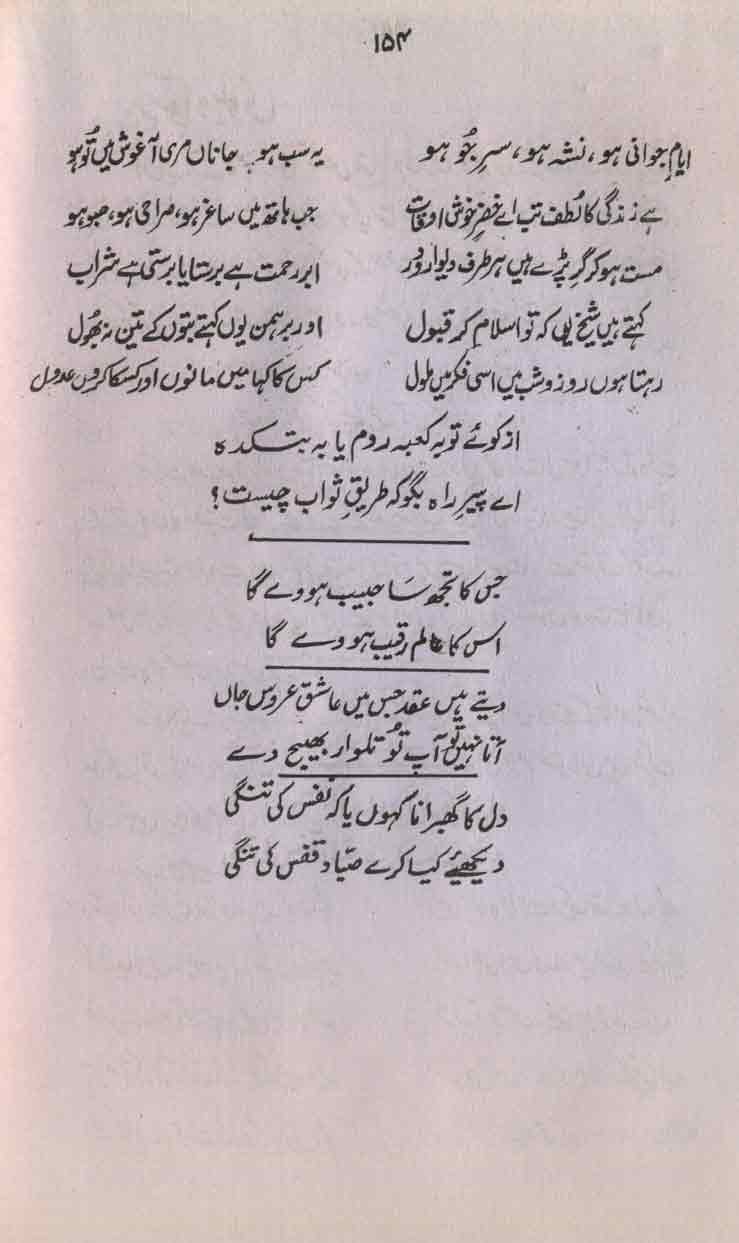 ۱۵۴
ایامِ جوانی ہو، نشہ ہو، سرِ جُو ہو یہ سب ہو جاناں مری آغوش میں تُو ہو
ہے زندگی کا لُطف تب اے خضرِ خوش اوقات جب ہاتھ میں ساغر ہو، صراحی ہو، سبو ہو
مست ہو کر گر پڑے ہیں ہر طرف دیوار و در ابرِ رحمت ہے برستا یا برستی ہے شراب
کہتے ہیں شیخ یہی کہ تو اسلام کر قبول اور برہمن یوں کہتے بتوں کے تیں نہ بھُول
رہتا ہوں روز و شب میں اسی فکر میں ملول کس کا کہا میں مانوں اور کسکا کروں عدول
از کوئے تو بہ کعبہ روم یا بہ بتکدہ
اے پیرِ راہ بگو کہ طریقِ ثواب چیست؟
جس کا تجھ سا حبیب ہووے گا
اس کا عالم رقیب ہووے گا
دیتے ہیں عقد جس میں عاشق عروسِ جاں
آتا نہیں تو آپ تُو تلوار بھیج دے
دل کا گھبرانا کہوں یا کہ نفس کی تنگی
دیکھئے کیا کرے صیّاد قفس کی تنگی